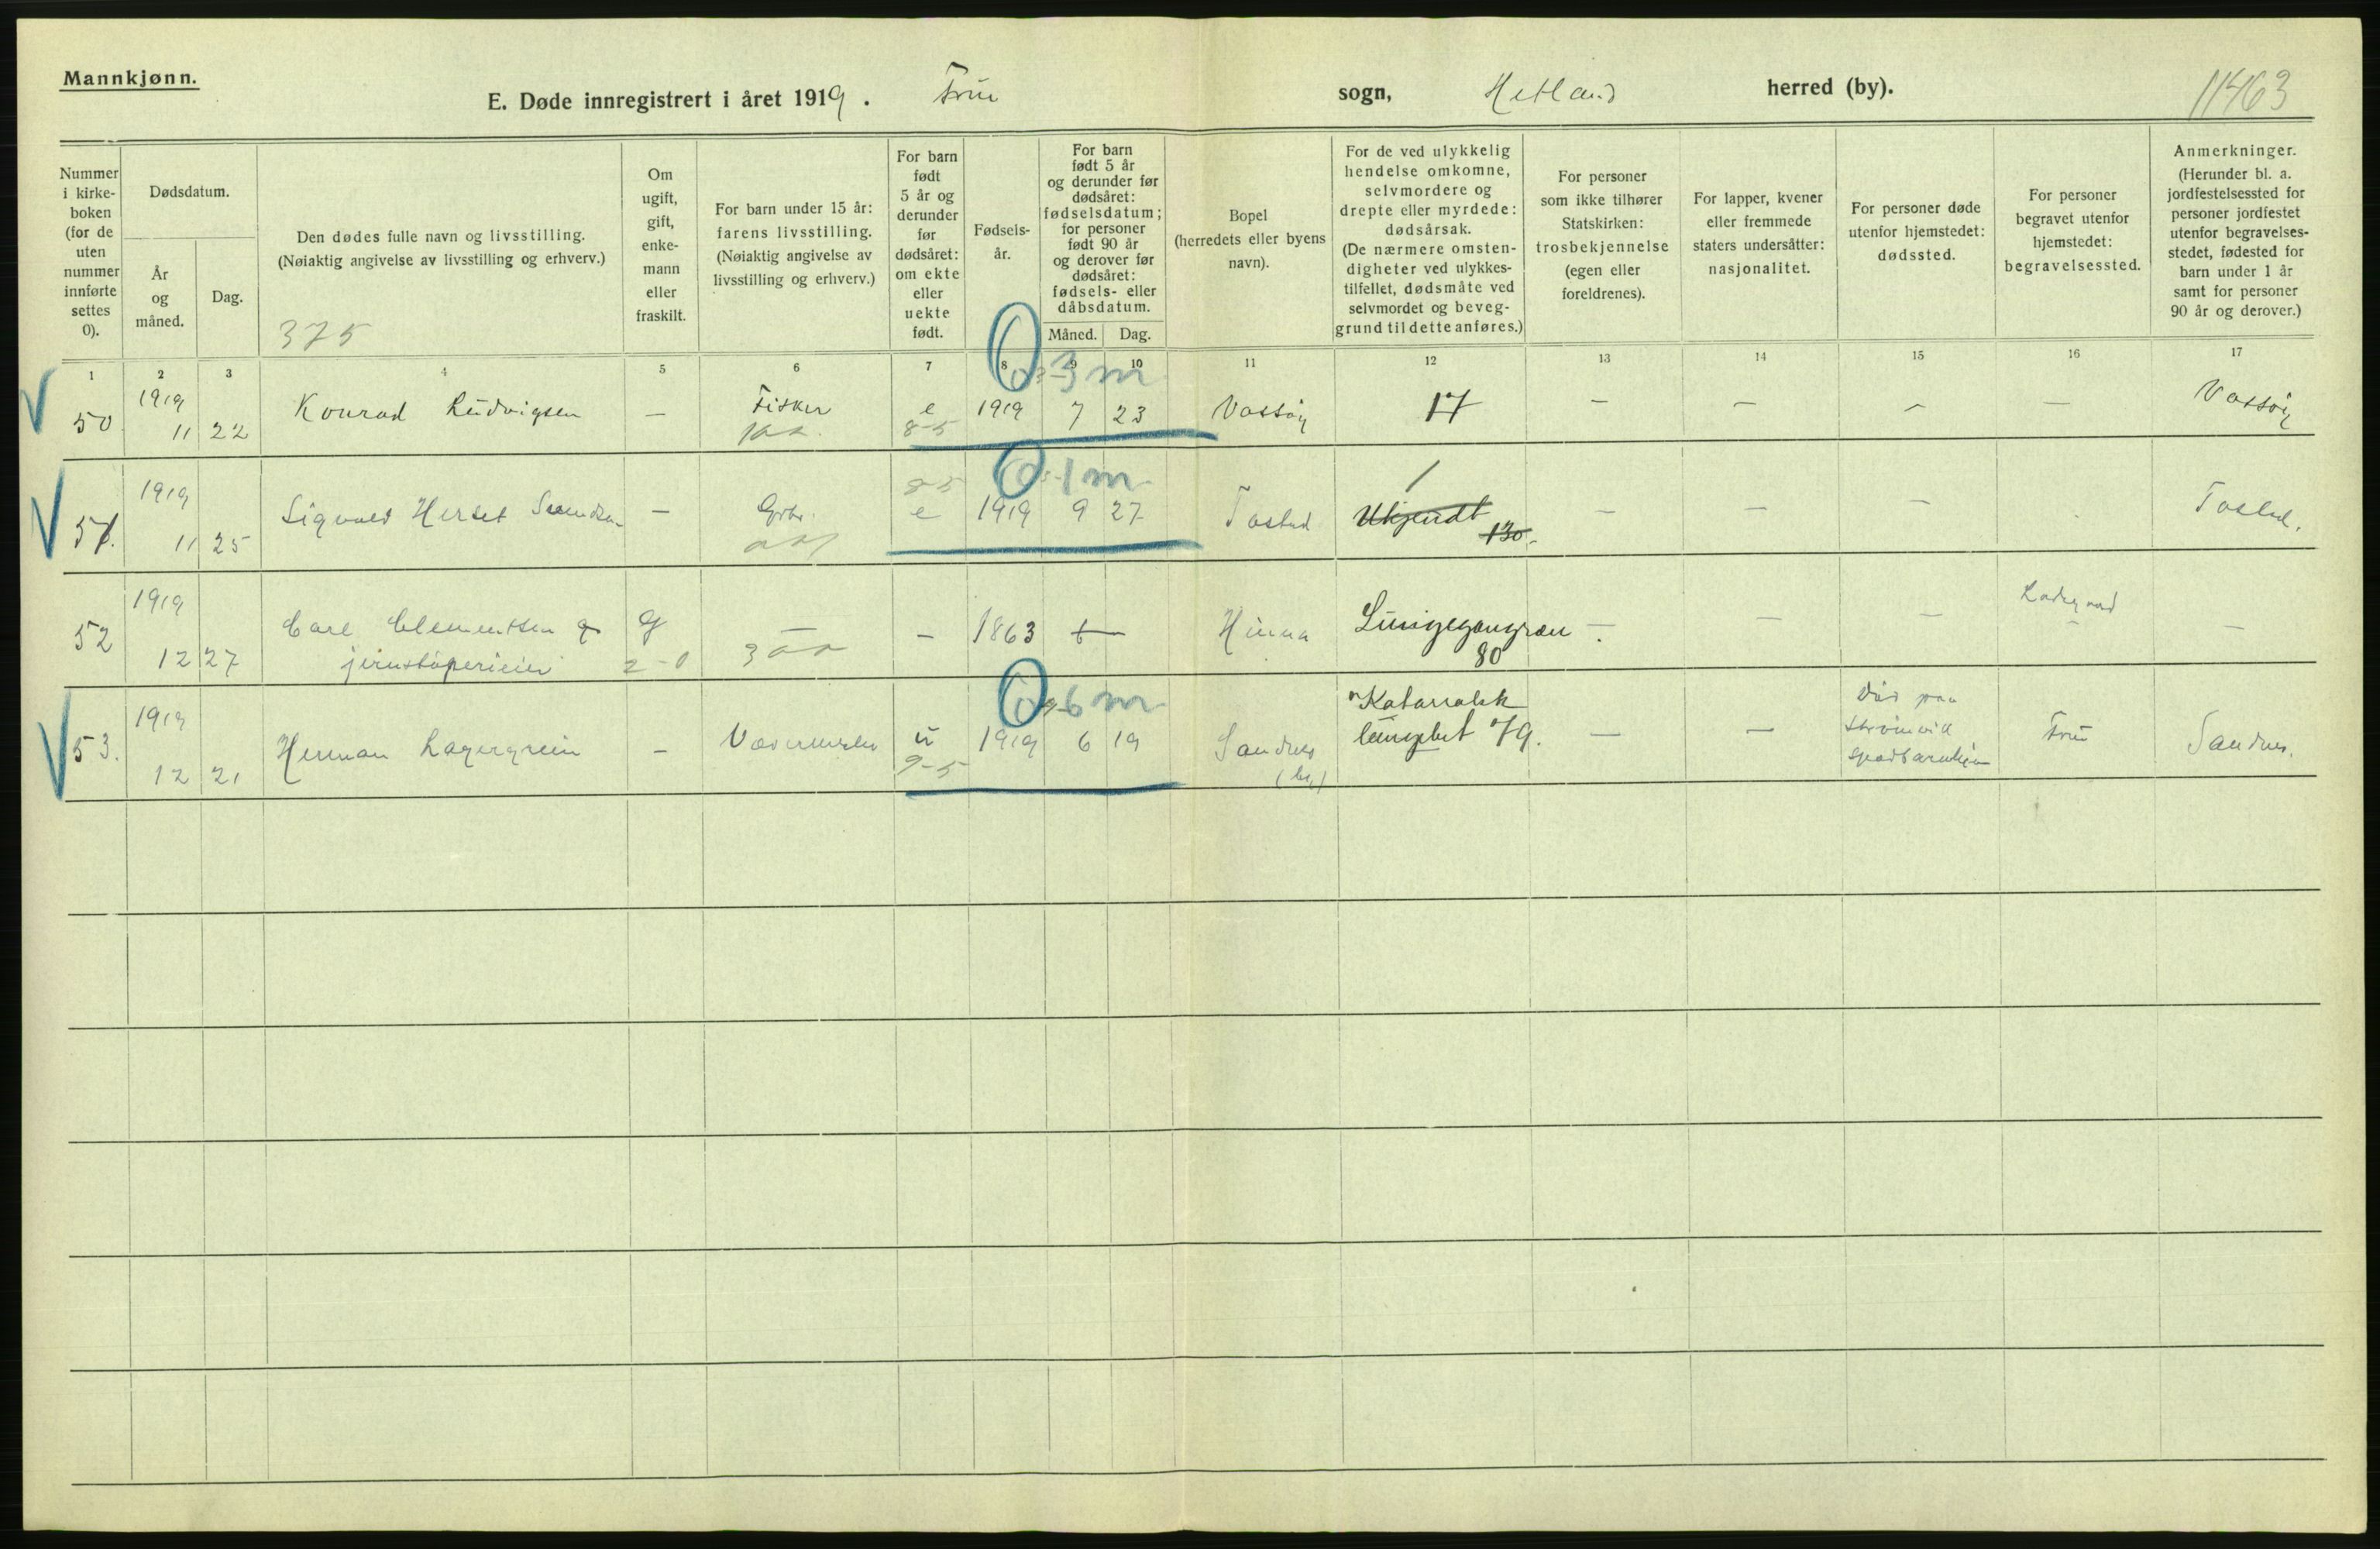 Mannkjønn.
E. Døde innregistrert i året 1919. Frue sogn, Hetland herred (by).
11463
Nummer i kirke-boken (for de uten nummer innførte settes 0).
Dødsdatum.
År og måned.
Dag.
Den dødes fulle navn og livsstilling.
(Nøiaktig angivelse av livsstilling og erhverv.)
375
Om ugift, gift, enke-mann eller fraskilt.
For barn under 15 år: farens livsstilling.
(Nøiaktig angivelse av livsstilling og erhverv.)
For barn født 5 år og derunder før dødsåret: om ekte eller uekte født.
Fødsels-år.
For barn født 5 år og derunder før dødsåret: fødselsdatum; for personer født 90 år og derover før dødsåret: fødsels- eller dåbsdatum.
Måned. Dag.
Bopel (herredets eller byens navn).
For de ved ulykkelig hendelse omkomne, selvmordere og drepte eller myrdede: dødsårsak.
(De nærmere omsten-digheter ved ulykkes-tilfellet, dødsmåte ved selvmordet og beveg-grund til dette anføres.)
For personer som ikke tilhører Statskirken: trosbekjennelse (egen eller foreldrenes).
For lapper, kvener eller fremmede staters undersåtter: nasjonalitet.
For personer døde utenfor hjemstedet: dødssted.
For personer begravet utenfor hjemstedet: begravelsessted.
Anmerkninger.
(Herunder bl. a. jordfestelsessted for personer jordfestet utenfor begravelses-stedet, fødested for barn under 1 år samt for personer 90 år og derover.)
1 2 3 4 5 6 7 8 9 10 11 12 13 14 15 16 17
0 3 m
50 1919 11 22 Konrad Ludvigsen — Fisker e 8-5 1919 7 23 Vassøy 17 — — — — Vassøy
0 1 m
51. 1919 11 25 Sigvald Herset — Grbr. 8-5 e 1919 9 27 Tasted 1 Ukjendt 130. — — — Tasted.
52 1919 12 27 Carl Clementsen G 2-0 — — 1863 — Hinna Lungegangræn 80 — — — —
0 6 m
53. 1919 12 21 Herman Lagergrein — u 9-5 1919 6 19 Sandnes (by) Katarralsk lungebet 79. — — Død paa Strømvik spædbarnhjem Frue Sandnes.